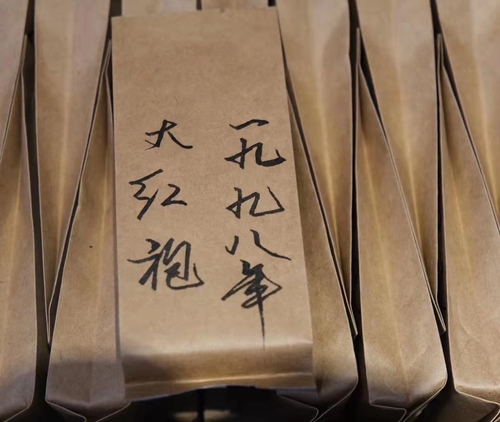 一九九八年
大红袍